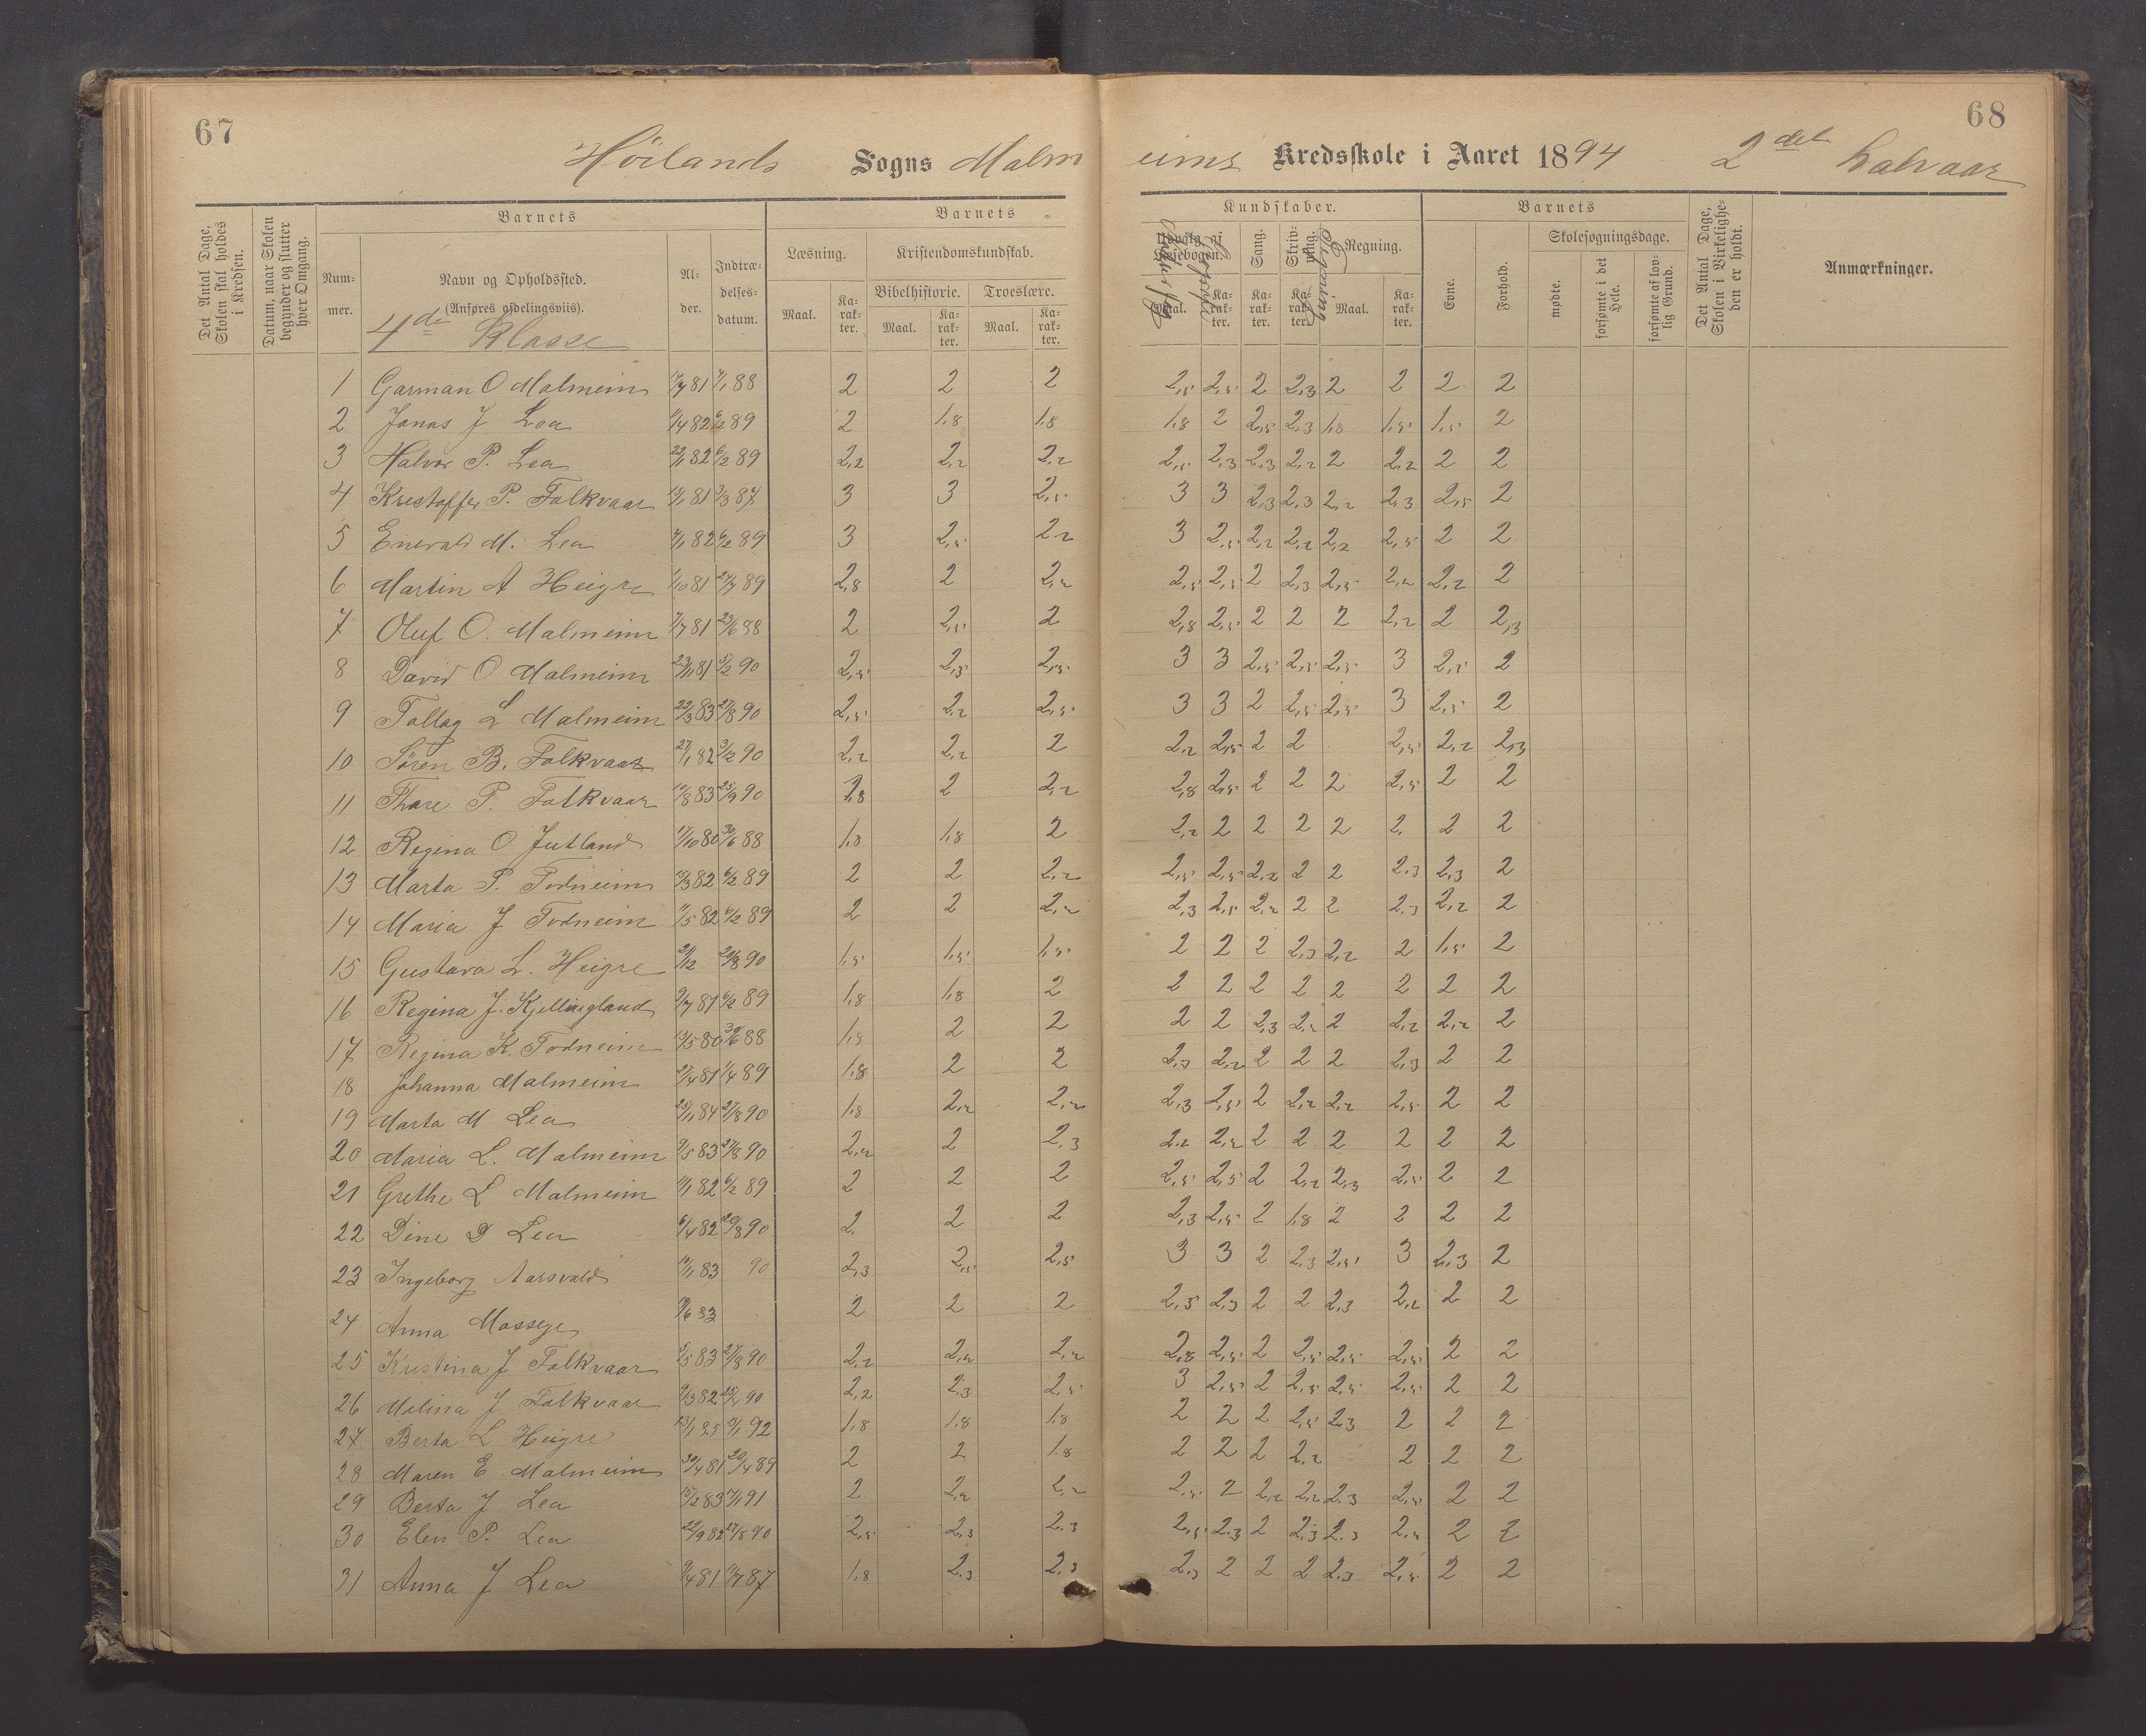 67
68
Höilands Sogns Malmeims Kredsskole i Aaret 1894 2det halvaar
Det Antal Dage, Skolen skal holdes i Kredsen.
Datum, naar Skolen begynder og slutter hver Omgang.
Barnets
Nummer.
Navn og Opholdssted.
(Anføres afdelingsviis).
4de Klasse
Alder.
Indtrædelsesdatum.
Barnets
Læsning.
Maal.
Karakter.
Kristendomskundskab.
Bibelhistorie.
Maal.
Karakter.
Troeslære.
Maal.
Karakter.
Kundskaber.
Udvalg af Læsebogen.
Maal.
Karakter.
Sang.
Karakter.
Skrivning.
Karakter.
Regning.
Maal.
Karakter.
Barnets
Evne.
Forhold.
Skolesøgningsdage.
mødte.
forsømte i det Hele.
forsømte af lovlig Grund.
Det Antal Dage, Skolen i Virkeligheden er holdt.
Anmærkninger.
1 Garman O Malmeim 81 88 2 2 2 2,5 2,5 2 2,3 2 2 2 2
2 Jonas J Lea 82 6/2 89 2 1,8 1,8 1,8 2 2,5 2,3 1,8 1,5 1,5 2
3 Halvor P. Lea 22/1 82 6/2 89 2,2 2,2 2,2 2,5 2,3 2,3 2,2 2 2,2 2 2
4 Kristoffer P. Folkvaar 81 3/3 87 3 3 2,5 3 3 2,3 2,3 2,2 2,3 2,5 2
5 Enevald M. Lea 82 6/2 89 3 2,5 2,2 3 2,5 2,2 2,2 2,2 2,5 2 2
6 Martin A Heigre 81 89 2,8 2 2,2 2,5 2,5 2 2,3 2,5 2,2 2,2 2
7 Oluf O. Malmeim 81 23/6 88 2 2,5 2 2,8 2,5 2 2 2 2,2 2 2,3
8 David O Malmeim 23/11 81 5/2 90 2,5 2,5 2,5 3 3 2,5 2,5 2,5 3 2,5 2
9 Tollag L Malmeim 22/3 83 27/8 90 2,5 2,2 2,5 3 3 2 2,5 2,5 3 2,5 2
10 Sören B. Folkvaar 27/1 82 3/12 90 2,2 2,2 2 2,2 2,5 2 2 2,5 2,2 2,3
11 Thore P. Folkvaar 83 25/9 90 1,8 2 2,2 2,8 2,5 2 2 2 2,5 2 2
12 Regina O Jutland 17/10 80 30/6 88 1,8 1,8 2 2,2 2 2 2 2 2, 2 2
13 Marta P. Todneim 82 6/2 89 2 2 2,2 2,5 2,5 2,2 2 2 2,3 2,3 2
14 Maria J Todneim 82 6/2 89 2 2 2,2 2,3 2,5 2,2 2 2 2,3 2,2 2
15 Gustava L. Heigre 90 1,5 1,5 1,5 2 2 2 2,3 2,2 2 1,5 2
16 Regina J. Kjellingland 81 6/2 89 1,8 1,8 2 2 2 2 2 2 2 2 2
17 Regina K. Todneim 80 30/6 88 1,8 2 2 2 2 2,3 2,2 2 2,2 2,2 2
18 Johanna Malmeim 81 1/4 89 1,8 2 2 2,3 2,2 2 2 2 2,3 2 2
19 Marta M Lea 84 27/8 90 1,8 2,2 2,2 2,3 2,5 2 2,2 2,2 2,5 2 2
20 Maria L. Malmeim 83 27/8 90 2,2 2 2,3 2,2 2,2 2 2 2 2 2 2
21 Grethe L Malmeim 82 6/2 89 2 2 2 2,5 2,5 2 2,2 2,3 2,5 2 2
22 Dine D Lea 6/4 82 90 2, 2 2 2,3 2,5 2 1,8 2 2 2 2
23 Ingeborg Aarsvold 83 90 2,3 2,5 2,5 3 3 2 2,3 2,5 3 2,3 2
24 Anna Mossege 83 2 2 2 2,5 2,3 2 2 2,3 2,2 2 2
25 Kristina J Folkvaar 83 27/8 90 2,2 2,2 2,2 2,8 2,5 2 2,5 2,5 2,5 2 2
26 Malina J Folkvaar 82 90 2,2 2,3 2,5 3 2,5 2 2,5 2,5 2,5 2 2
27 Berta L Heigre 13/1 85 92 1,8 1,8 1,8 2 2 2 2,5 2,3 2 2 2
28 Maren E Malmeim 30/4 81 20/4 89 2 2 1,8 2 2 2 2,2 2 2 2
29 Berta J Lea 15/2 83 91 2 2,2 2,2 2,5 2 2,2 2,2 2,3 2,5 2 2
30 Elen P. Lea 22/9 82 27/8 90 2,5 2,3 2,3 2,5 2,3 2 2,3 2,3 2,2 2 2
31 Anna J Lea 81 87 1,8 2,3 2,3 2,3 2 2 2 2,3 2,5 2 2